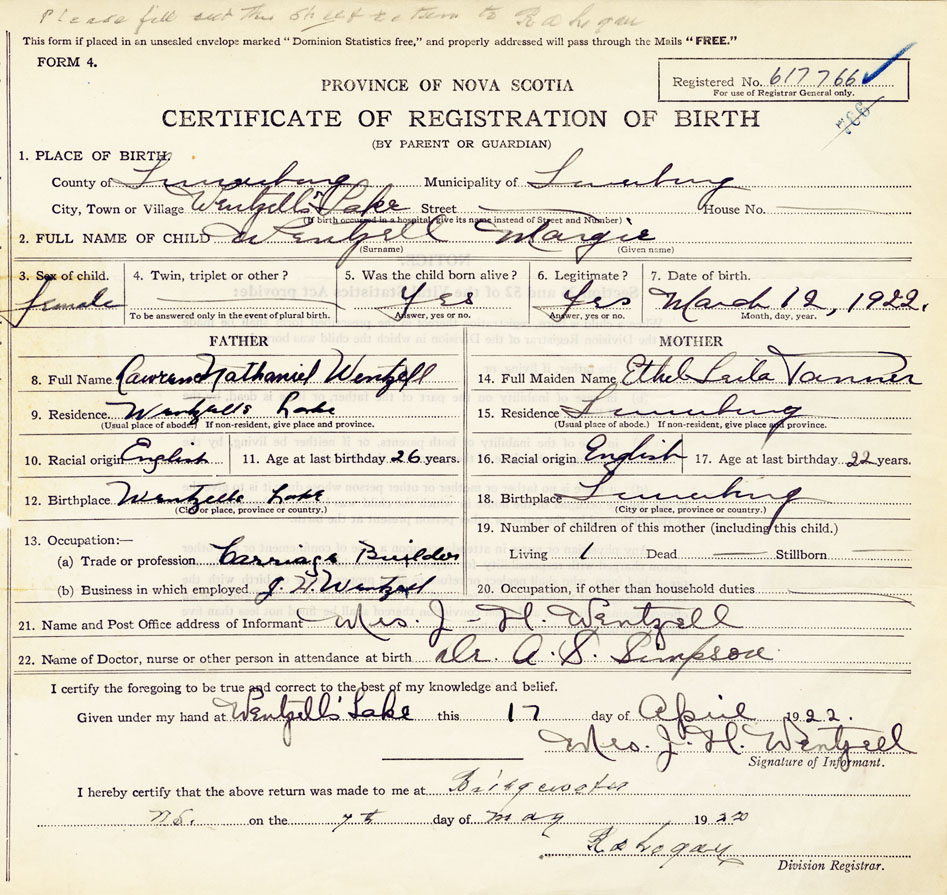 Please fill out this sheet & return to R a Logan
This form if placed in an unsealed envelope marked "Dominion Statistics free," and properly addressed will pass through the Mails "FREE."
FORM 4.
PROVINCE OF NOVA SCOTIA
Registered No. 617766
For use of Registrar General only.
CERTIFICATE OF REGISTRATION OF BIRTH
(BY PARENT OR GUARDIAN)
1. PLACE OF BIRTH,
County of Lunenburg Municipality of Lunenburg
City, Town or Village Wentzell's Lake Street House No.
(If birth occurred in a hospital, give its name instead of Street and Number)
2. FULL NAME OF CHILD Wentzell Margie
(Surname) (Given name)
3. Sex of child. 4. Twin, triplet or other? 5. Was the child born alive? 6. Legitimate? 7. Date of birth.
female Yes Yes March 12, 1922.
To be answered only in the event of plural birth. Answer, yes or no. Answer, yes or no. Month, day, year.
FATHER MOTHER
8. Full Name Lawrence Nathaniel Wentzell 14. Full Maiden Name Ethel Leila Tanner
9. Residence Wentzells Lake 15. Residence Lunenburg
(Usual place of abode.) If non-resident, give place and province. (Usual place of abode.) If non-resident, give place and province.
10. Racial origin English 11. Age at last birthday 26 years. 16. Racial origin English 17. Age at last birthday 22 years.
12. Birthplace Wentzells Lake 18. Birthplace Lunenburg
(City or place, province or country.) (City or place, province or country.)
13. Occupation:— 19. Number of children of this mother (including this child.)
(a) Trade or profession Carriage Builder Living 1 Dead Stillborn
(b) Business in which employed J. H. Wentzell 20. Occupation, if other than household duties
21. Name and Post Office address of Informant Mrs. J - H. Wentzell
22. Name of Doctor, nurse or other person in attendance at birth Dr. A. S. Simpson
I certify the foregoing to be true and correct to the best of my knowledge and belief.
Given under my hand at Wentzell's Lake this 17 day of April 1922.
Mrs. J. H. Wentzell
Signature of Informant.
I hereby certify that the above return was made to me at Bridgewater
N.S. on the 7th day of May 1922
R a Logan
Division Registrar.